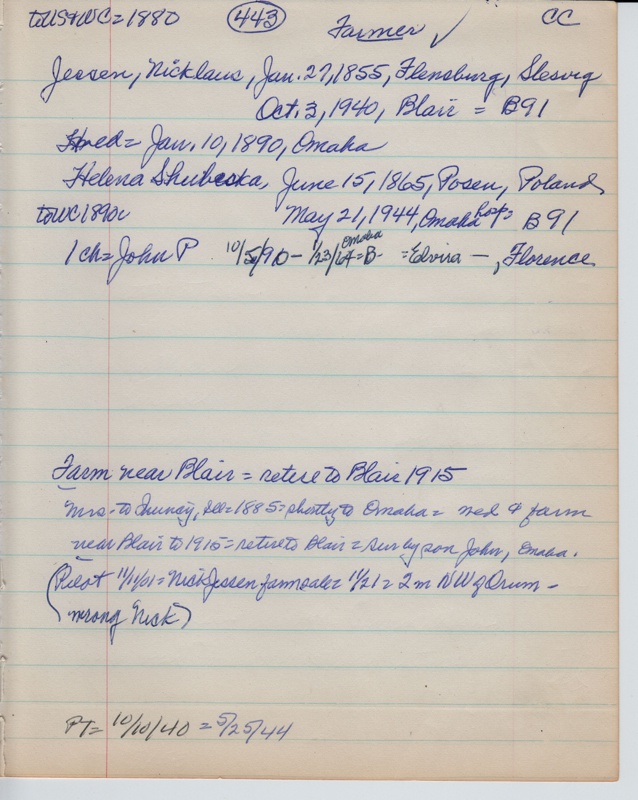 to US & WC = 1880 443 Farmer ✓ CC
Jessen, Nicklaus, Jan. 27, 1855, Flensburg, Slesvig
Oct. 3, 1940, Blair = B91
wed = Jan. 10, 1890, Omaha
Helena Shubeska, June 15, 1865, Posen, Poland
to WC 1890 May 21, 1944, Omaha hosp = B91
1 ch = John P 10/5/90 - 1/23/64 = B- Omaha = Edvira — , Florence
Farm near Blair = retire to Blair 1915
Mrs - to Ill = 1885 = shortly to Omaha = wed & farm
near Blair to 1915 = retire to Blair = sur by son John, Omaha.
(Pilot 11/11/01 = Nick Jessen farm sale = 11/21 = 2 m NW of Orum -
wrong Nick)
PT = 10/10/40 = 5/25/44